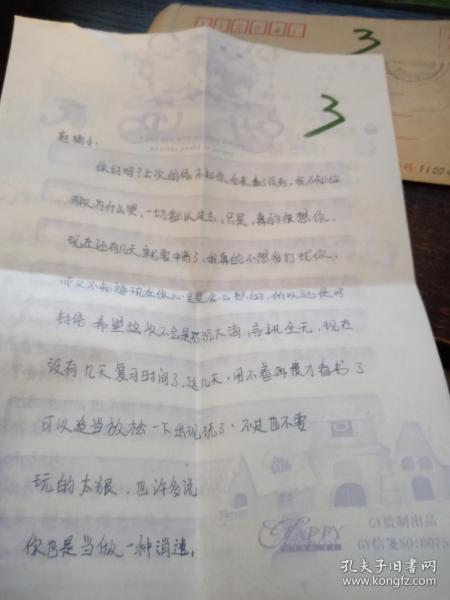 3
3
1100
你好吗?上次的信不知你
为什么哭,一切都以过去,只是,真的很想你,
现在还有几天就要中考了,我真的不想多打扰你,
可又不知道现在你心里是怎么想的,所以还是写
封信 希望这次不会是石沉大海,音讯全无,现在
没有几天复习时间了,这几天,用不着再费力看书了
可以适当放松一下出玩玩了,不过也不要
玩的太狠,也许多说
你也是当做一种消遣,
HAPPY
GY监制出品
GY信笺NO:0075
孔夫子旧书网
www.kongfz.com